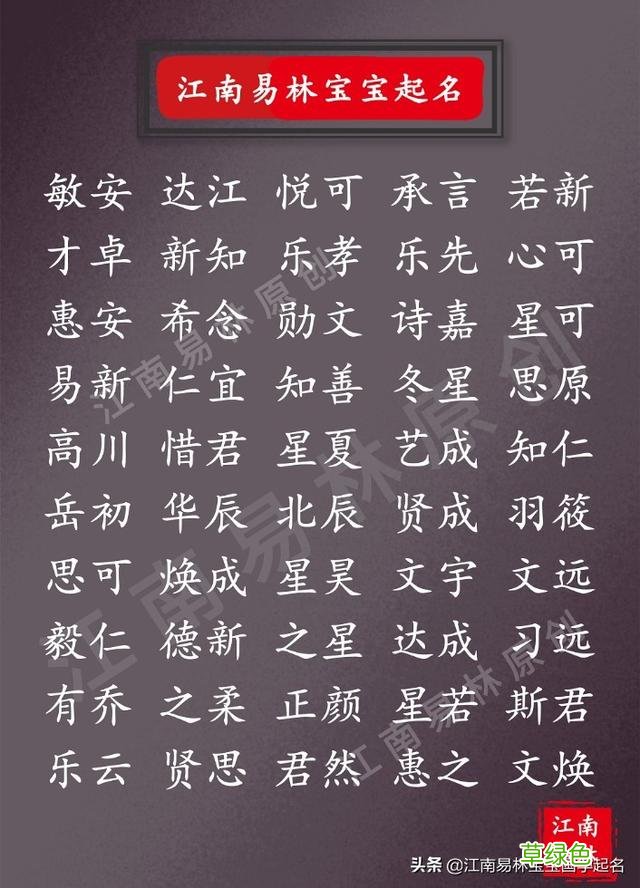 江南易林宝宝起名
敏安 达江 悦可 承言 若新
才卓 新知 乐孝 乐先 心可
惠安 希念 勋文 诗嘉 星可
易新 仁宜 知善 冬星 思原
高川 惜君 星夏 艺成 知仁
岳初 华辰 北辰 贤成 羽筱
思可 焕成 星昊 文宇 文远
毅仁 德新 之星 达成 习远
有乔 之柔 正颜 星若 斯君
乐云 贤思 君然 惠之 文焕
江南易林原创
江南易林原创
江南易林原创
江南
草绿色
头条 @江南易林宝宝国学起名